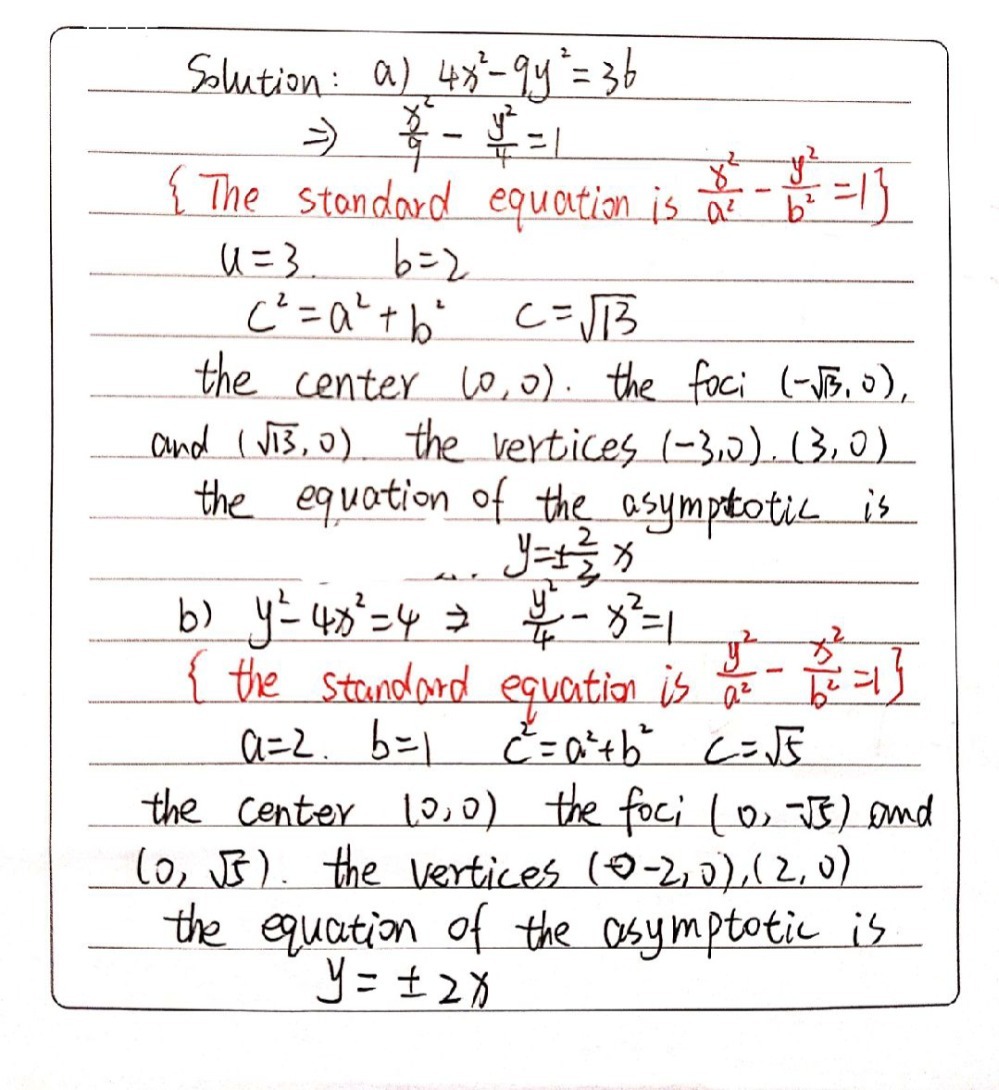 Solution: a) 4x²-9y²=36
⇒ x²/9 - y²/4 = 1
{ The standard equation is x²/a² - y²/b² = 1}
a=3. b=2
c²=a²+b² c=√13
the center (0,0). the foci (-√13,0),
and (√13,0). the vertices (-3,0). (3,0)
the equation of the asymptotic is
y=±2/3 x
b) y²-4x²=4 ⇒ y²/4 - x²=1
{ the standard equation is y²/a² - x²/b² =1}
a=2. b=1 c²=a²+b² c=√5
the center (0,0) the foci (0,-√5) and
(0, √5). the vertices (-2,0),(2,0)
the equation of the asymptotic is
y= ±2x